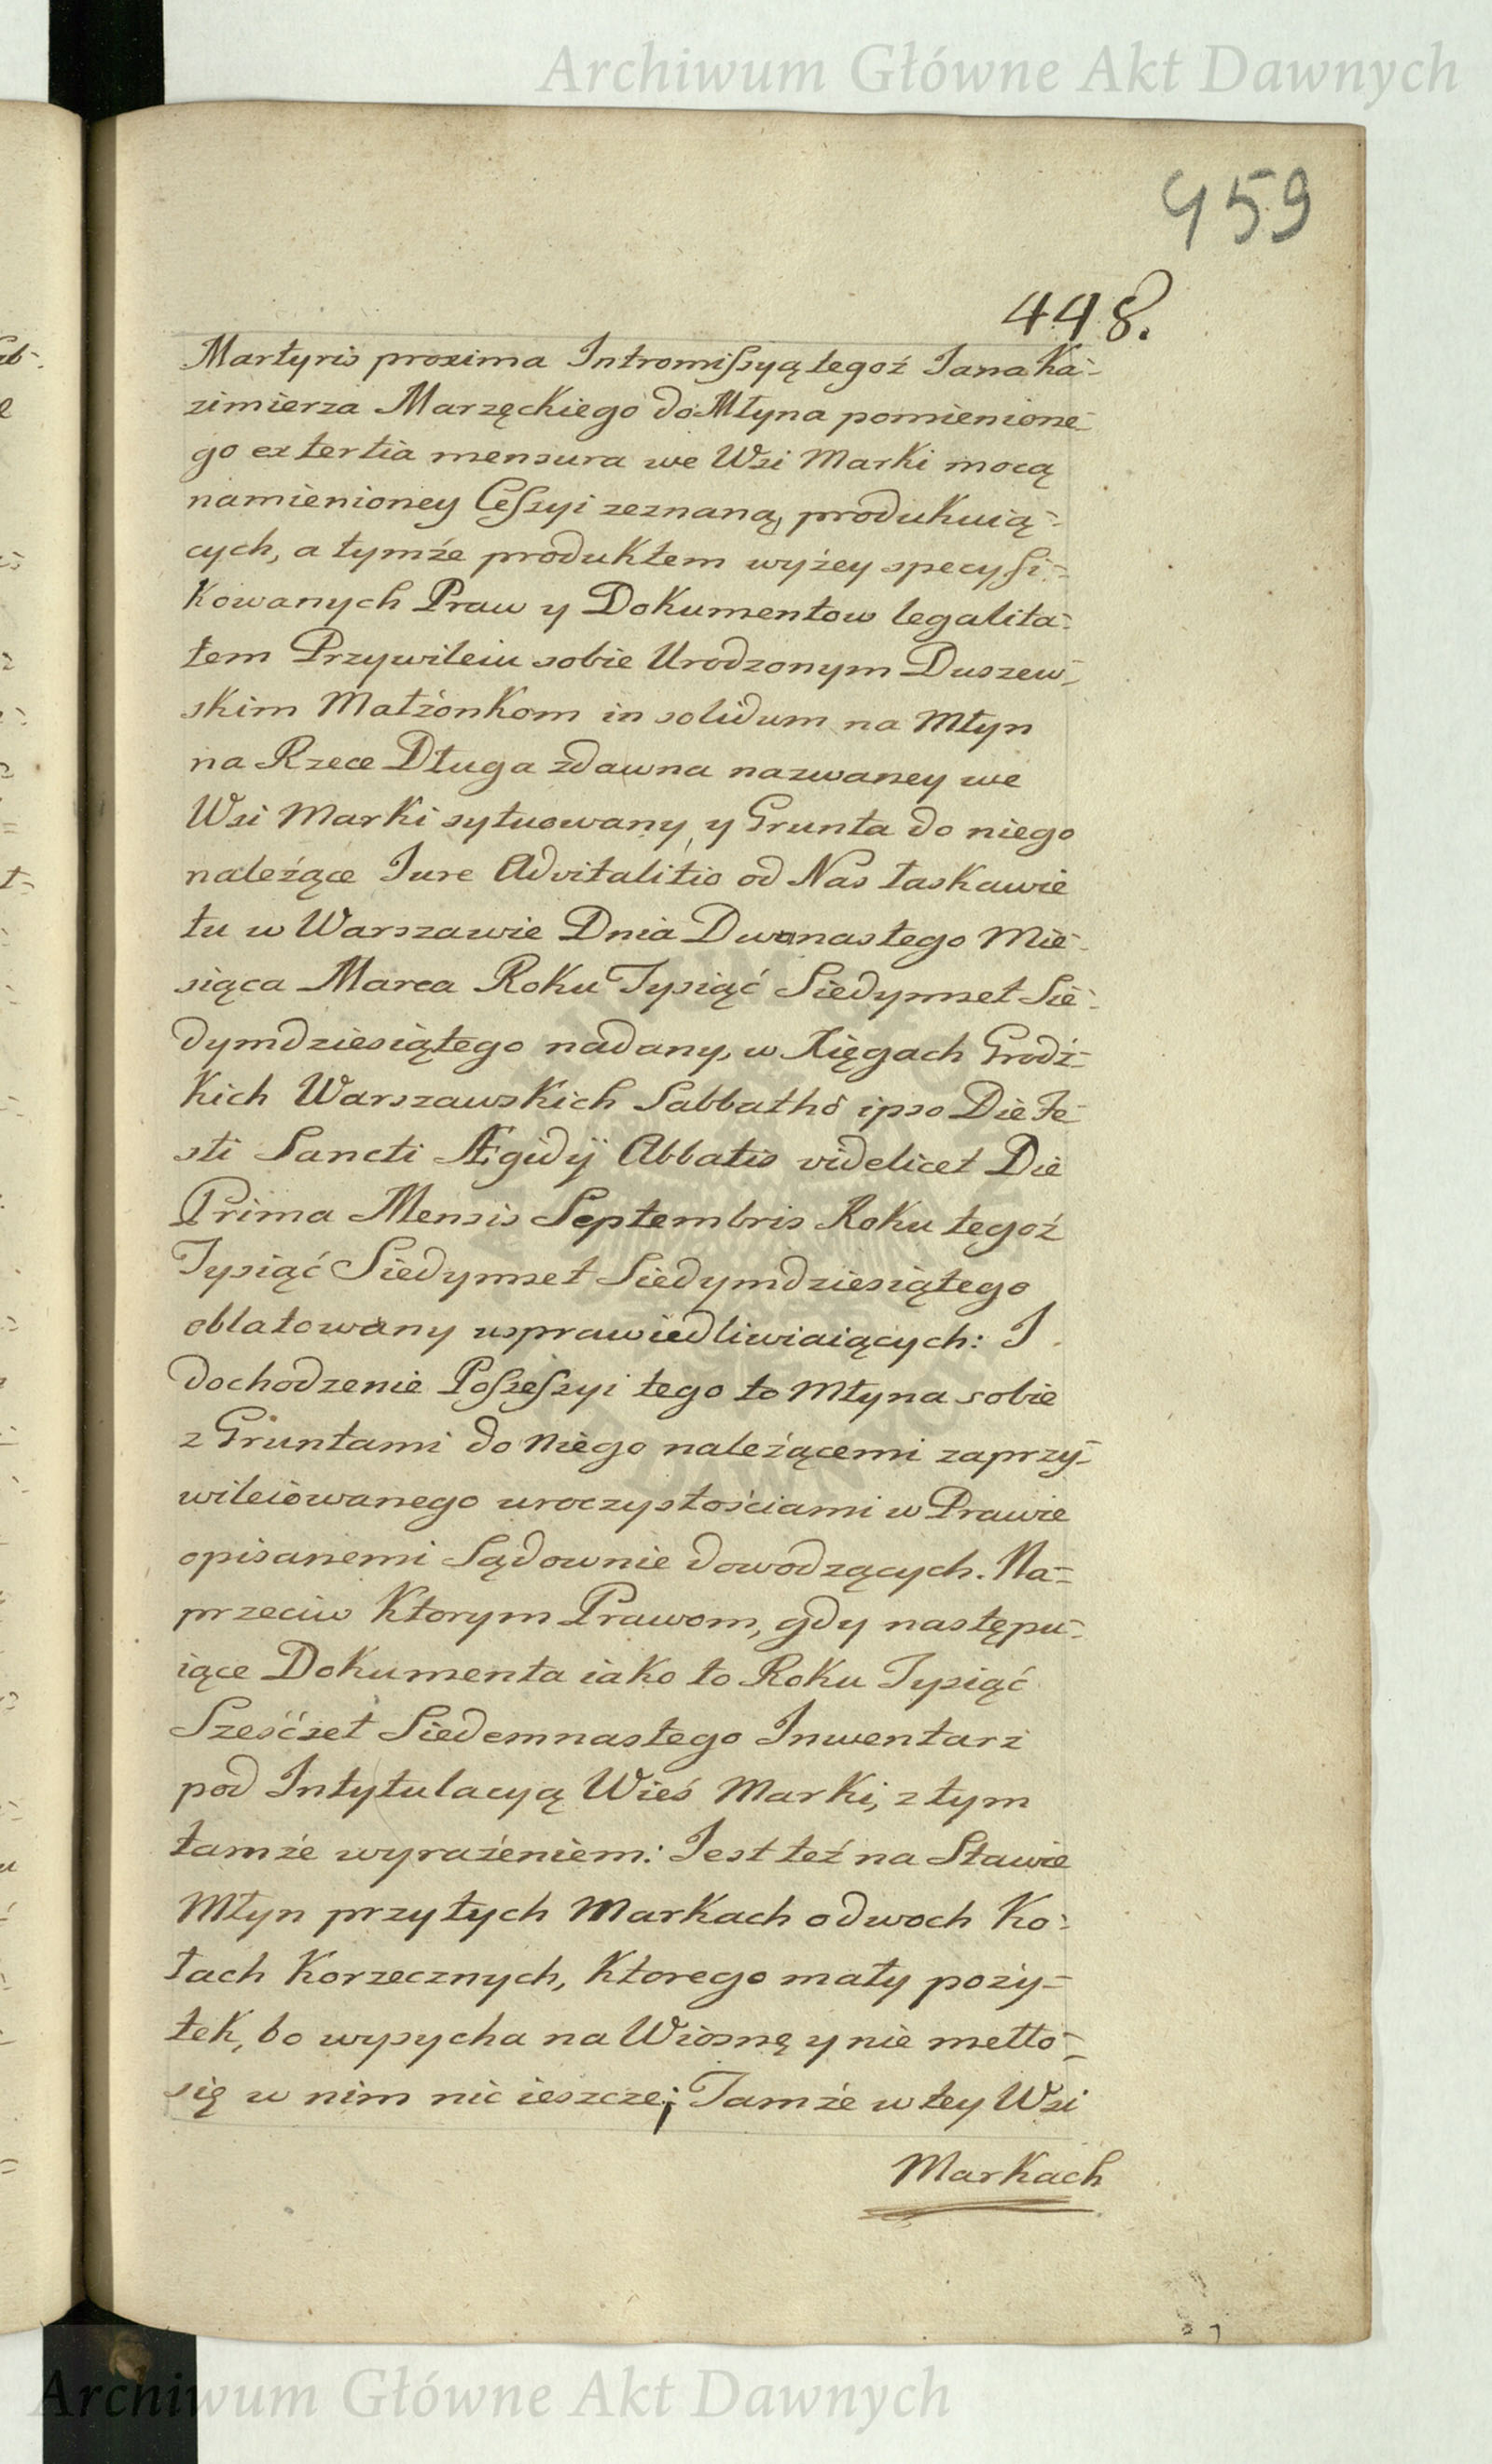 Archiwum Główne Akt Dawnych
459
448.
Martyris proxima Intromissyą tegoż Jana Ka-
zimierza Marzęckiego do Młyna pomienione-
go ex tertia mensura we Wsi Marki mocą
namienioney Cessyi zeznaną, produkuią-
cych, a tymże produktem wyżey specyfi-
kowanych Praw y Dokumentow legalita-
tem Przywileiu sobie Urodzonym Duszew-
skim Małżonkom in solidum na Młyn
na Rzece Długa zdawna nazwaney we
Wsi Marki sytuowany, y Grunta do niego
należące Jure Advitalitio od Nas łaskawie
tu w Warszawie Dnia Dwanastego Mie-
siąca Marca Roku Tysiąć Siedymset Sie-
dymdziesiątego nadany, w Xięgach Grodz-
kich Warszawskich Sabbathô ipso Die Fe-
sti Sancti Ægidÿ Abbatis videlicet Die
Prima Mensis Septembris Roku tegoż
Tysiąć Siedymset Siedymdziesiątego
oblatowany usprawiedliwiaiących: I
dochodzenie Possessyi tego to Młyna sobie
z Gruntami do niego należącemi zaprzy-
wileiowanego uroczystościami w Prawie
opisanemi Sądownie dowodzących. Na-
przeciw ktorym Prawom, gdy następu-
iące Dokumenta iako to Roku Tysiąć
Sześćset Siedemnastego Inwentarz
pod Intytulacyą Wieś Marki, z tym
tamże wyrażeniem: Jest też na Stawie
Młyn przy tych Markach o dwoch Ko-
łach Korzecznych, ktorego mały poży-
tek, bo wysycha na Wiosnę y nie mełło-
się w nim nic ieszcze; Tamże w tey Wsi
Markach
Archiwum Główne Akt Dawnych